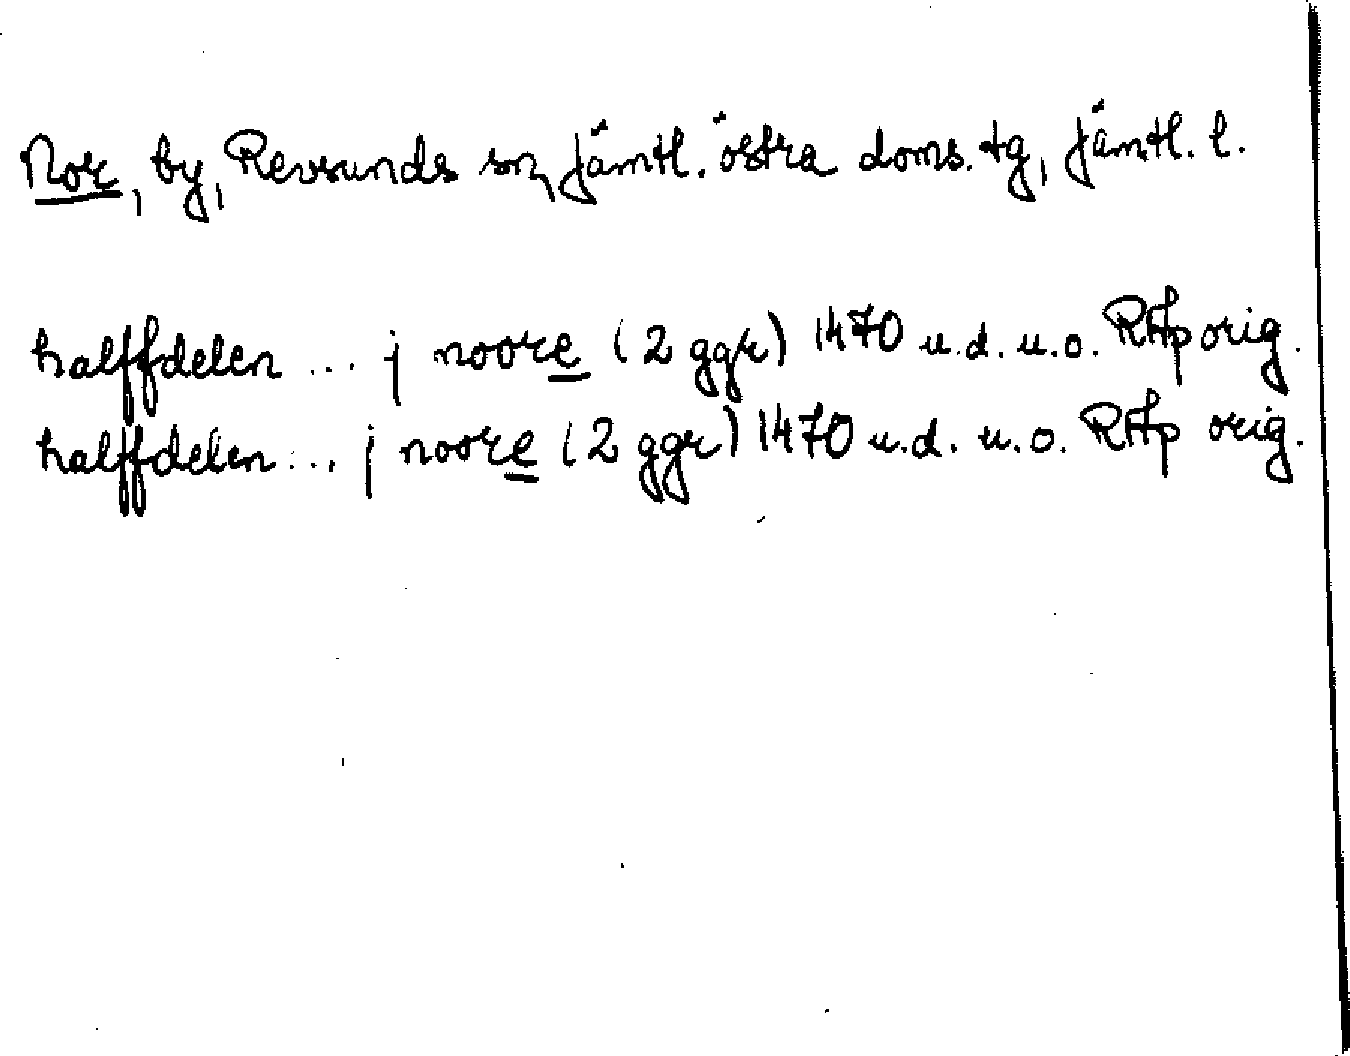 Nor, by, Revsunds sn, Jämtl. östra doms. tg, Jämtl. l.
halffdelen ... j noore (2 ggr) 1470 u.d. u.o. RAp orig.
halffdelen ... j noore (2 ggr) 1470 u.d. u.o. RAp orig.